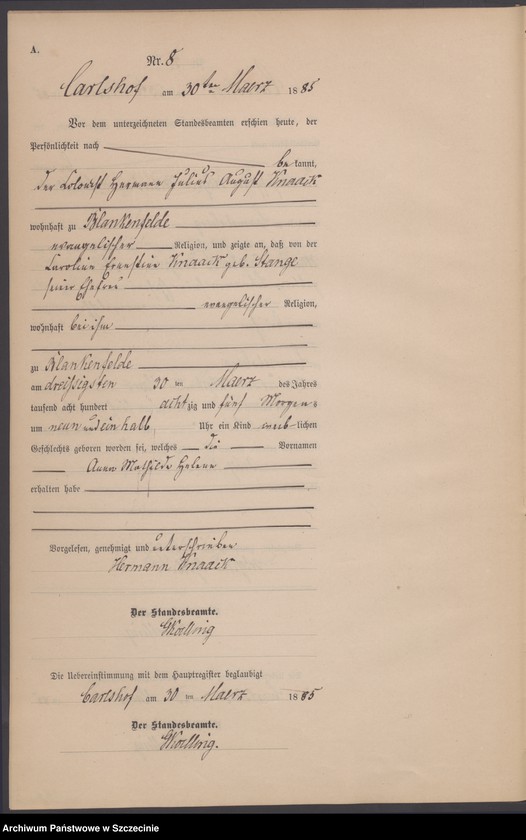 A.
Nr. 8
Carlshof am 30ten Maerz 1885
Vor dem unterzeichneten Standesbeamten erschien heute, der
Persönlichkeit nach
be kannt,
der Colonist Hermann Julius August Knaack
wohnhaft zu Blankenfelde
evangelischer Religion, und zeigte an, daß von der
Caroline Ernstine Knaack geb. Stange
seiner Ehefrau
evangelischer Religion,
wohnhaft bei ihm
zu Blankenfelde
am dreißigsten 30 ten Maerz des Jahres
tausend acht hundert acht zig und fünf Morgens
um neun und ein halb Uhr ein Kind weib lichen
Geschlechts geboren worden sei, welches die Vornamen
Anna Mathilde Helene
erhalten habe
Vorgelesen, genehmigt und unterschrieben
Hermann Knaack
Der Standesbeamte.
Die Uebereinstimmung mit dem Hauptregister beglaubigt
Carlshof am 30 ten Maerz 1885
Der Standesbeamte.
Archiwum Państwowe w Szczecinie